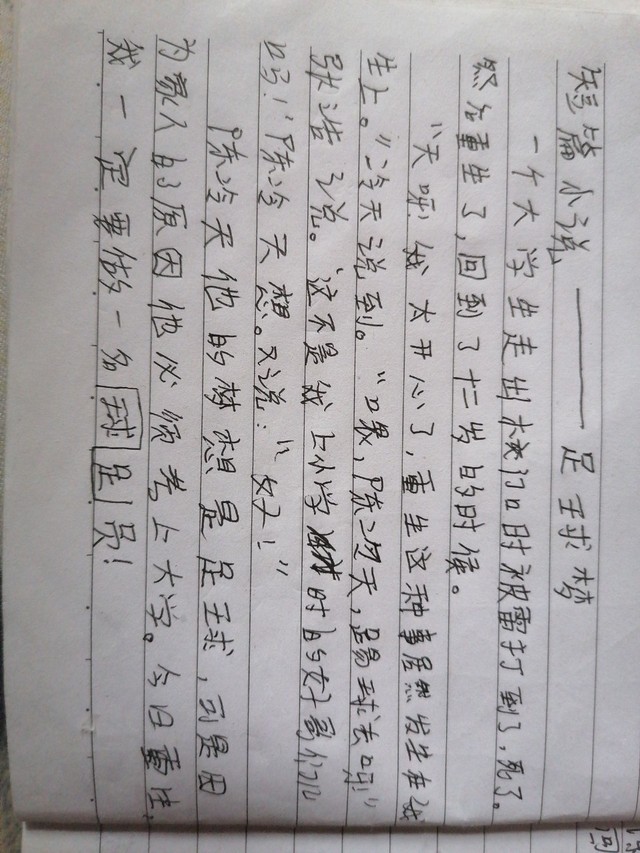 短篇小说——足球梦
一个大学生走出校门口时被雷打到了,死了。
然后重生了,回到了十二岁的时候。
“天呀我太开心了,重生这种事居然发生在我
生上。”冷天说到。“口果,陈冷天,踢球去呀!”
张浩说。“这不是我上小学时的好哥们儿
吗!”陈冷天想。又说:“好!”
陈冷天他的梦想是足球,可是因
为家人的原因他必须考上大学。今日重生,
我一定要做一名球足员!